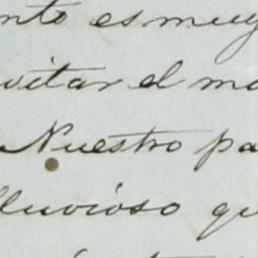 nto es muy
vitar el ma
Nuestro pa
lluvioso qu